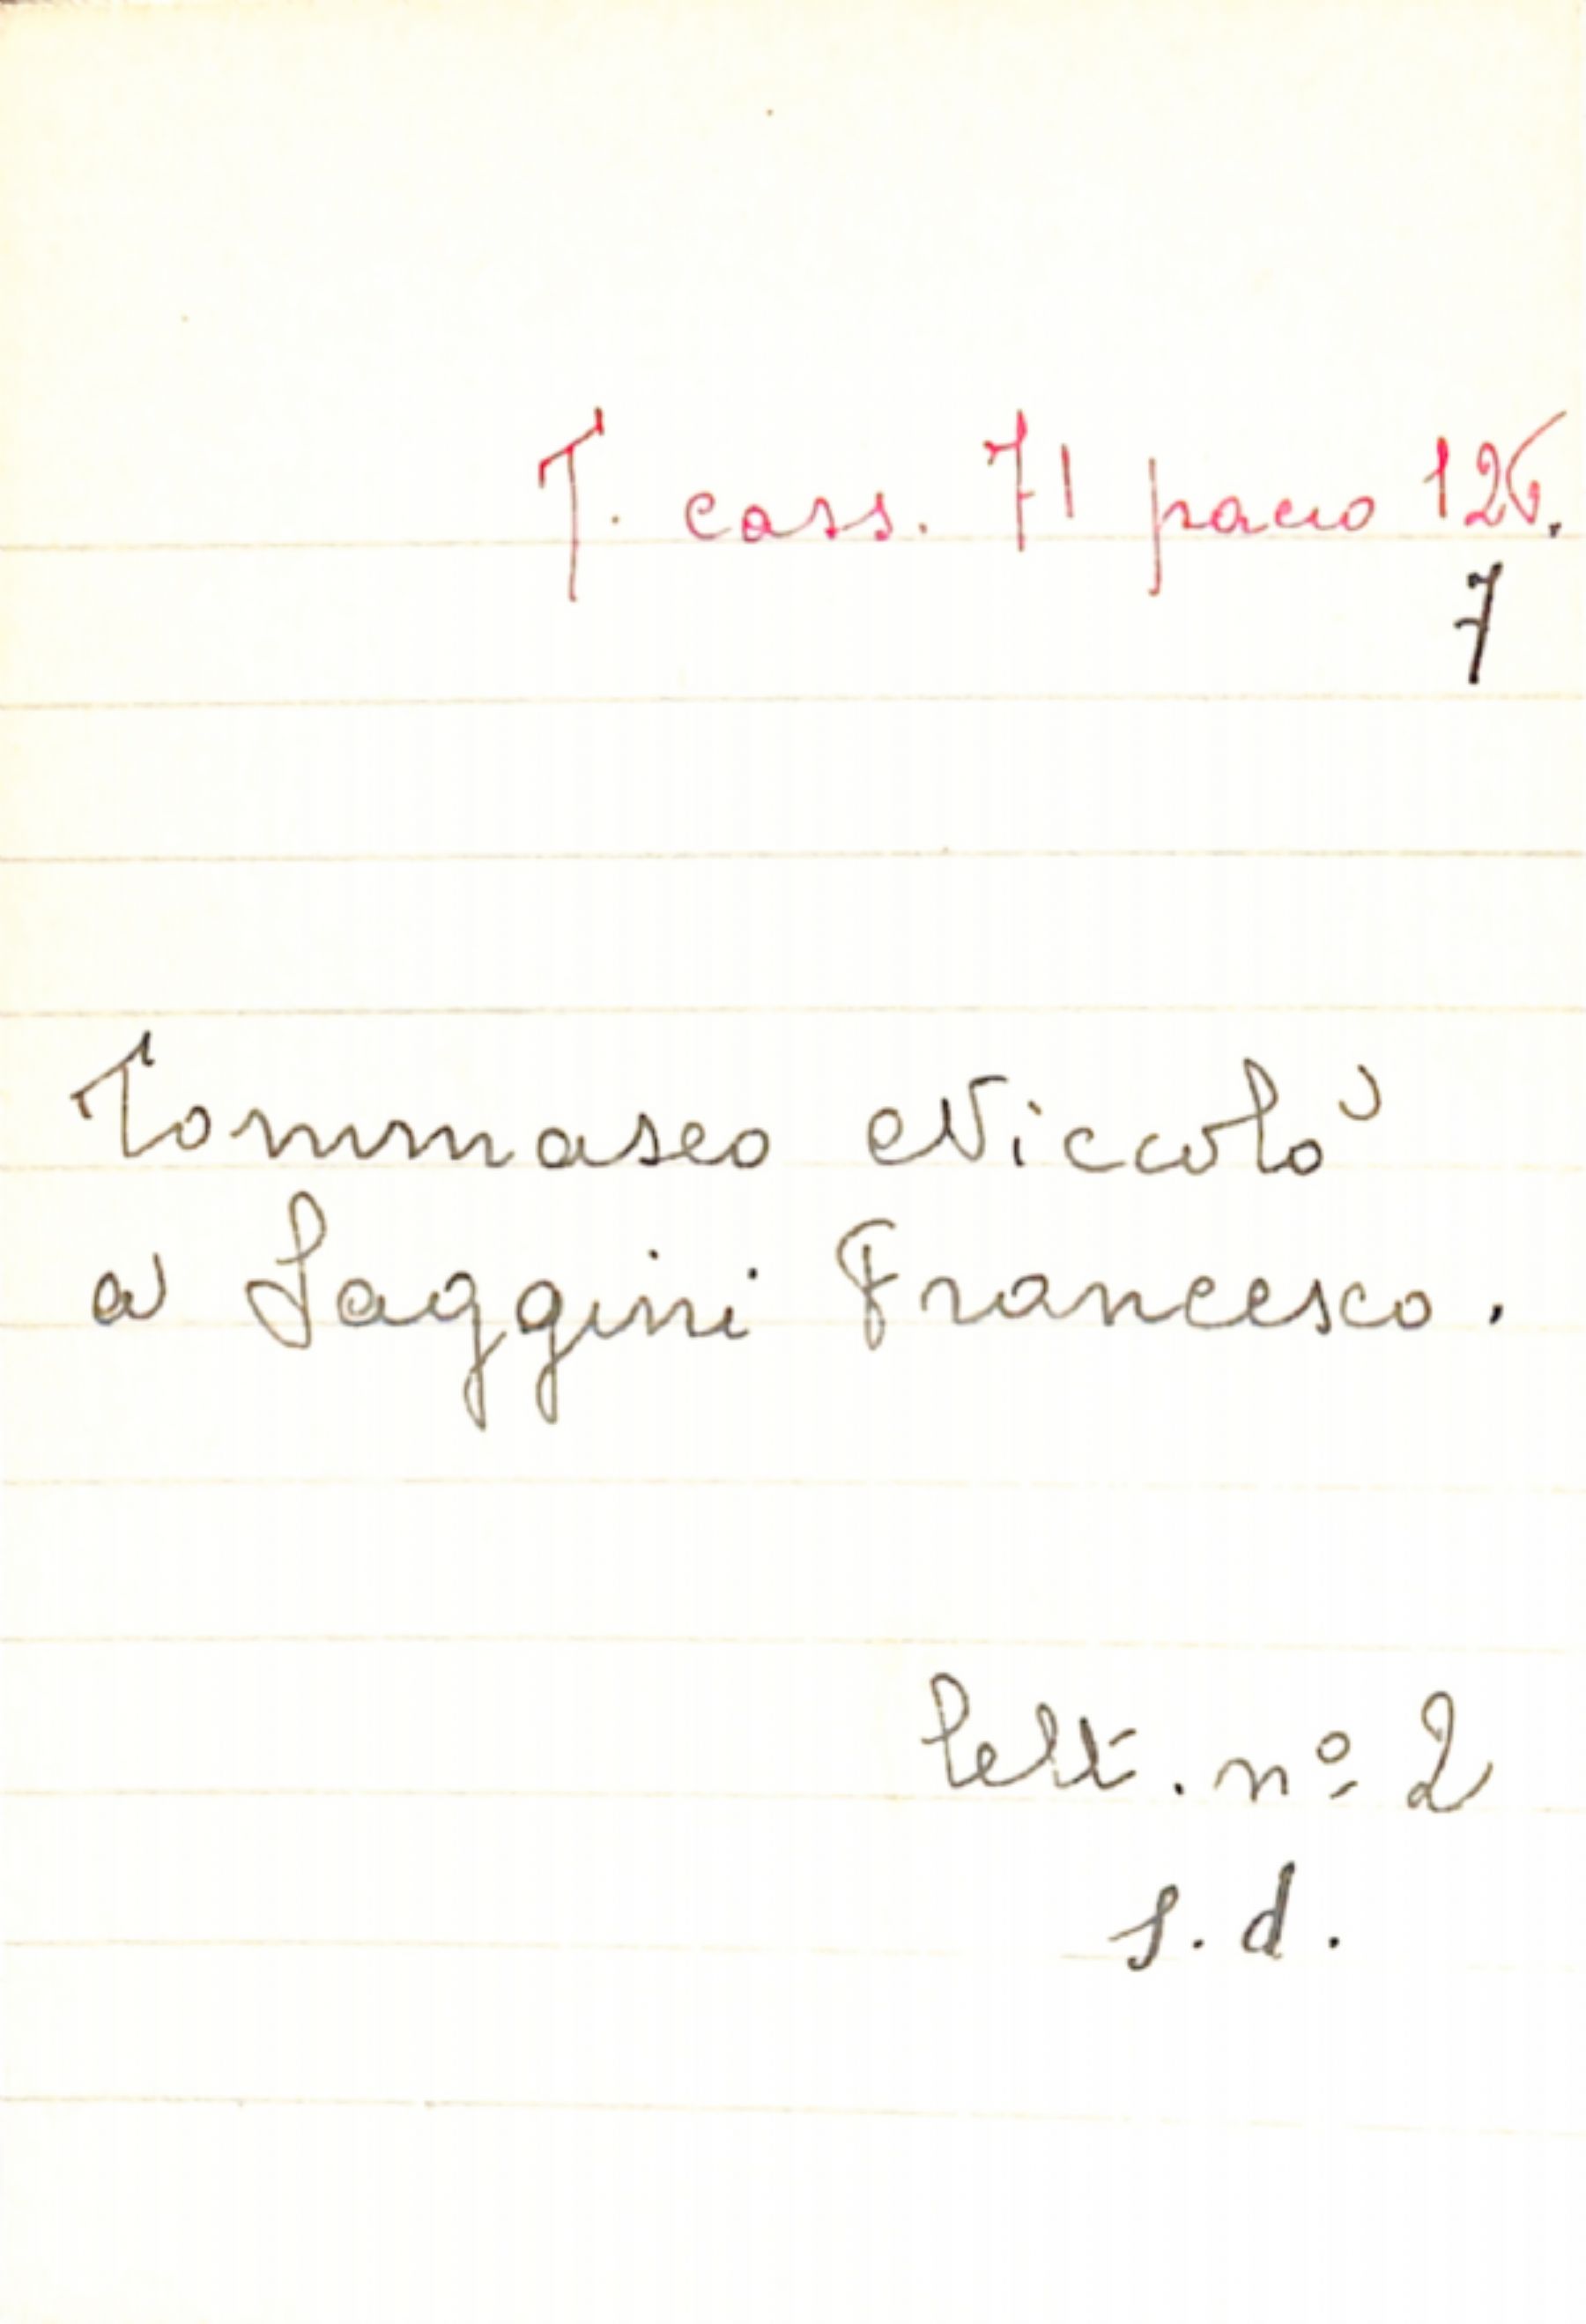 T. cass. 71 pacco 126.
7
Tommaseo Niccolò
a Saggini Francesco.
lett. nº 2
s. d.